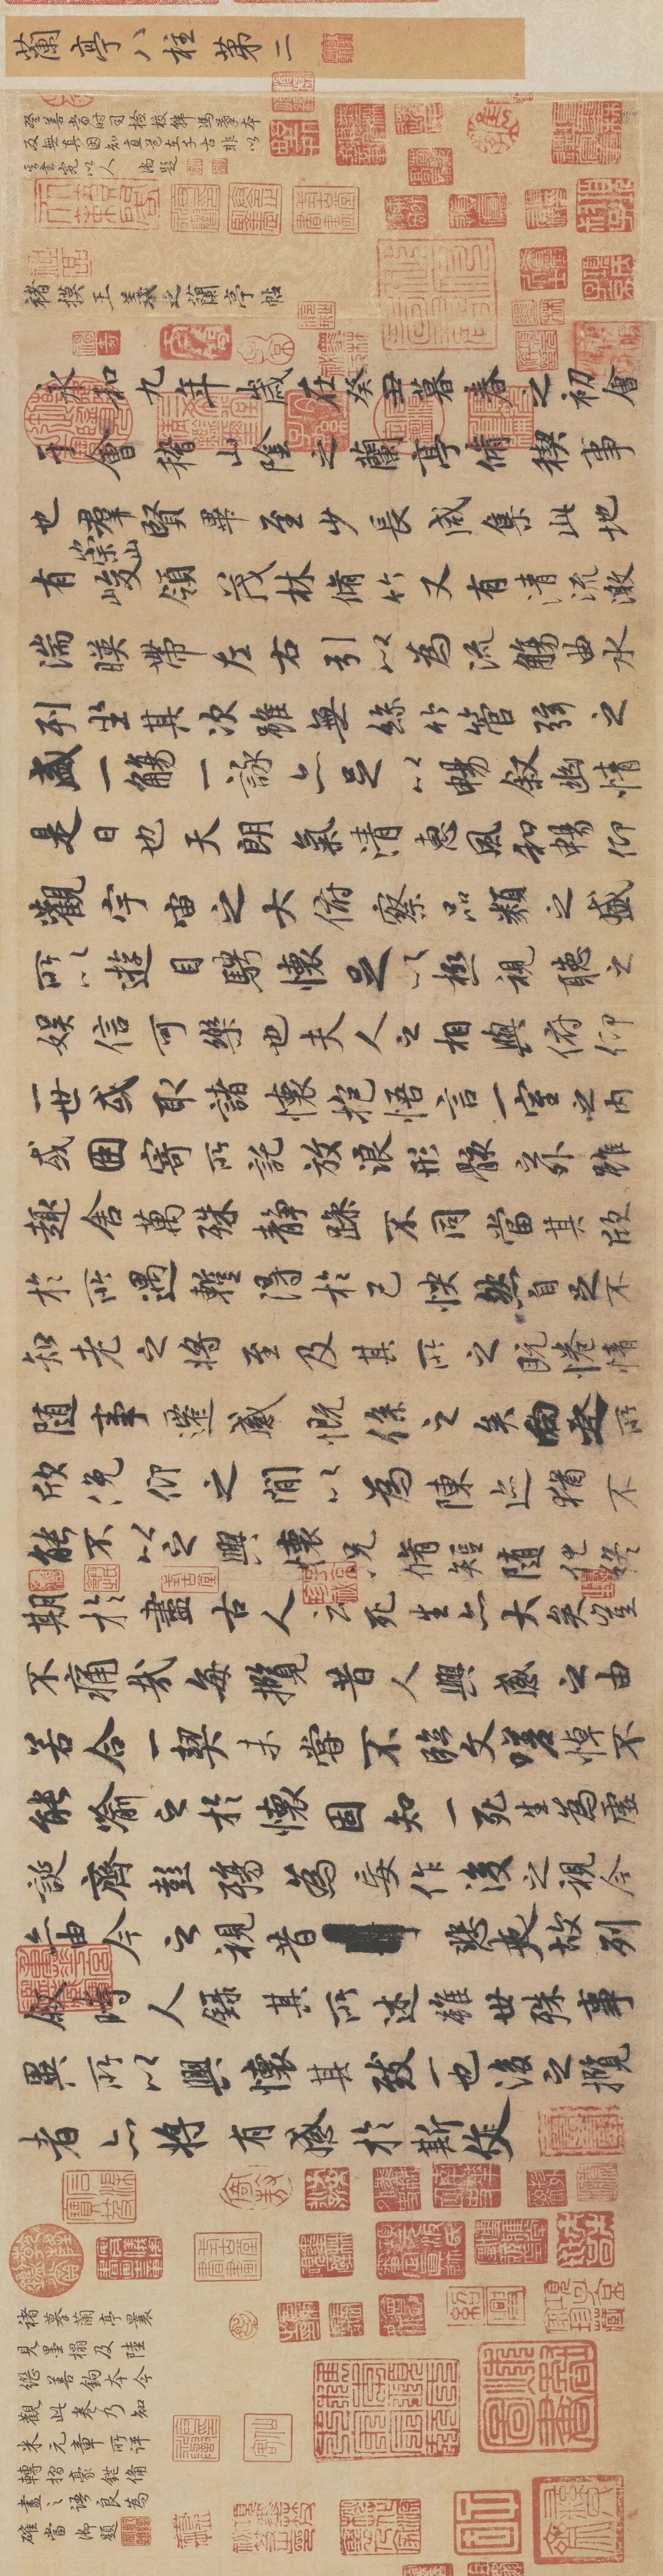 蘭亭八柱第二
褚摸王羲之蘭亭帖
永和九年歲在癸丑暮春之初會
于會稽山陰之蘭亭脩稧事
也羣賢畢至少長咸集此地
有崇山峻領茂林脩竹又有清流激
湍暎帶左右引以為流觴曲水
列坐其次雖無絲竹管弦之
盛一觴一詠亦足以暢敘幽情
是日也天朗氣清惠風和暢仰
觀宇宙之大俯察品類之盛
所以遊目騁懷足以極視聽之
娛信可樂也夫人之相與俯仰
一世或取諸懷抱悟言一室之內
或因寄所託放浪形骸之外雖
趣舍萬殊靜躁不同當其欣
於所遇暫得於己怏然自足不
知老之將至及其所之既惓情
隨事遷感慨係之矣向之所
欣俛仰之閒以為陳迹猶不
能不以之興懷況脩短隨化終
期於盡古人云死生亦大矣豈
不痛哉每攬昔人興感之由
若合一契未嘗不臨文嗟悼不
能喻之於懷固知一死生為虛
誕齊彭殤為妄作後之視今
亦由今之視昔悲夫故列
敘時人錄其所述雖世殊事
異所以興懷其致一也後之攬
者亦將有感於斯文
褚摹蘭亭曩
見墨搨及陸
繼善鉤本今
觀此卷乃知
米元章所評
轉摺豪鋩備
盡之語良為
確當御題